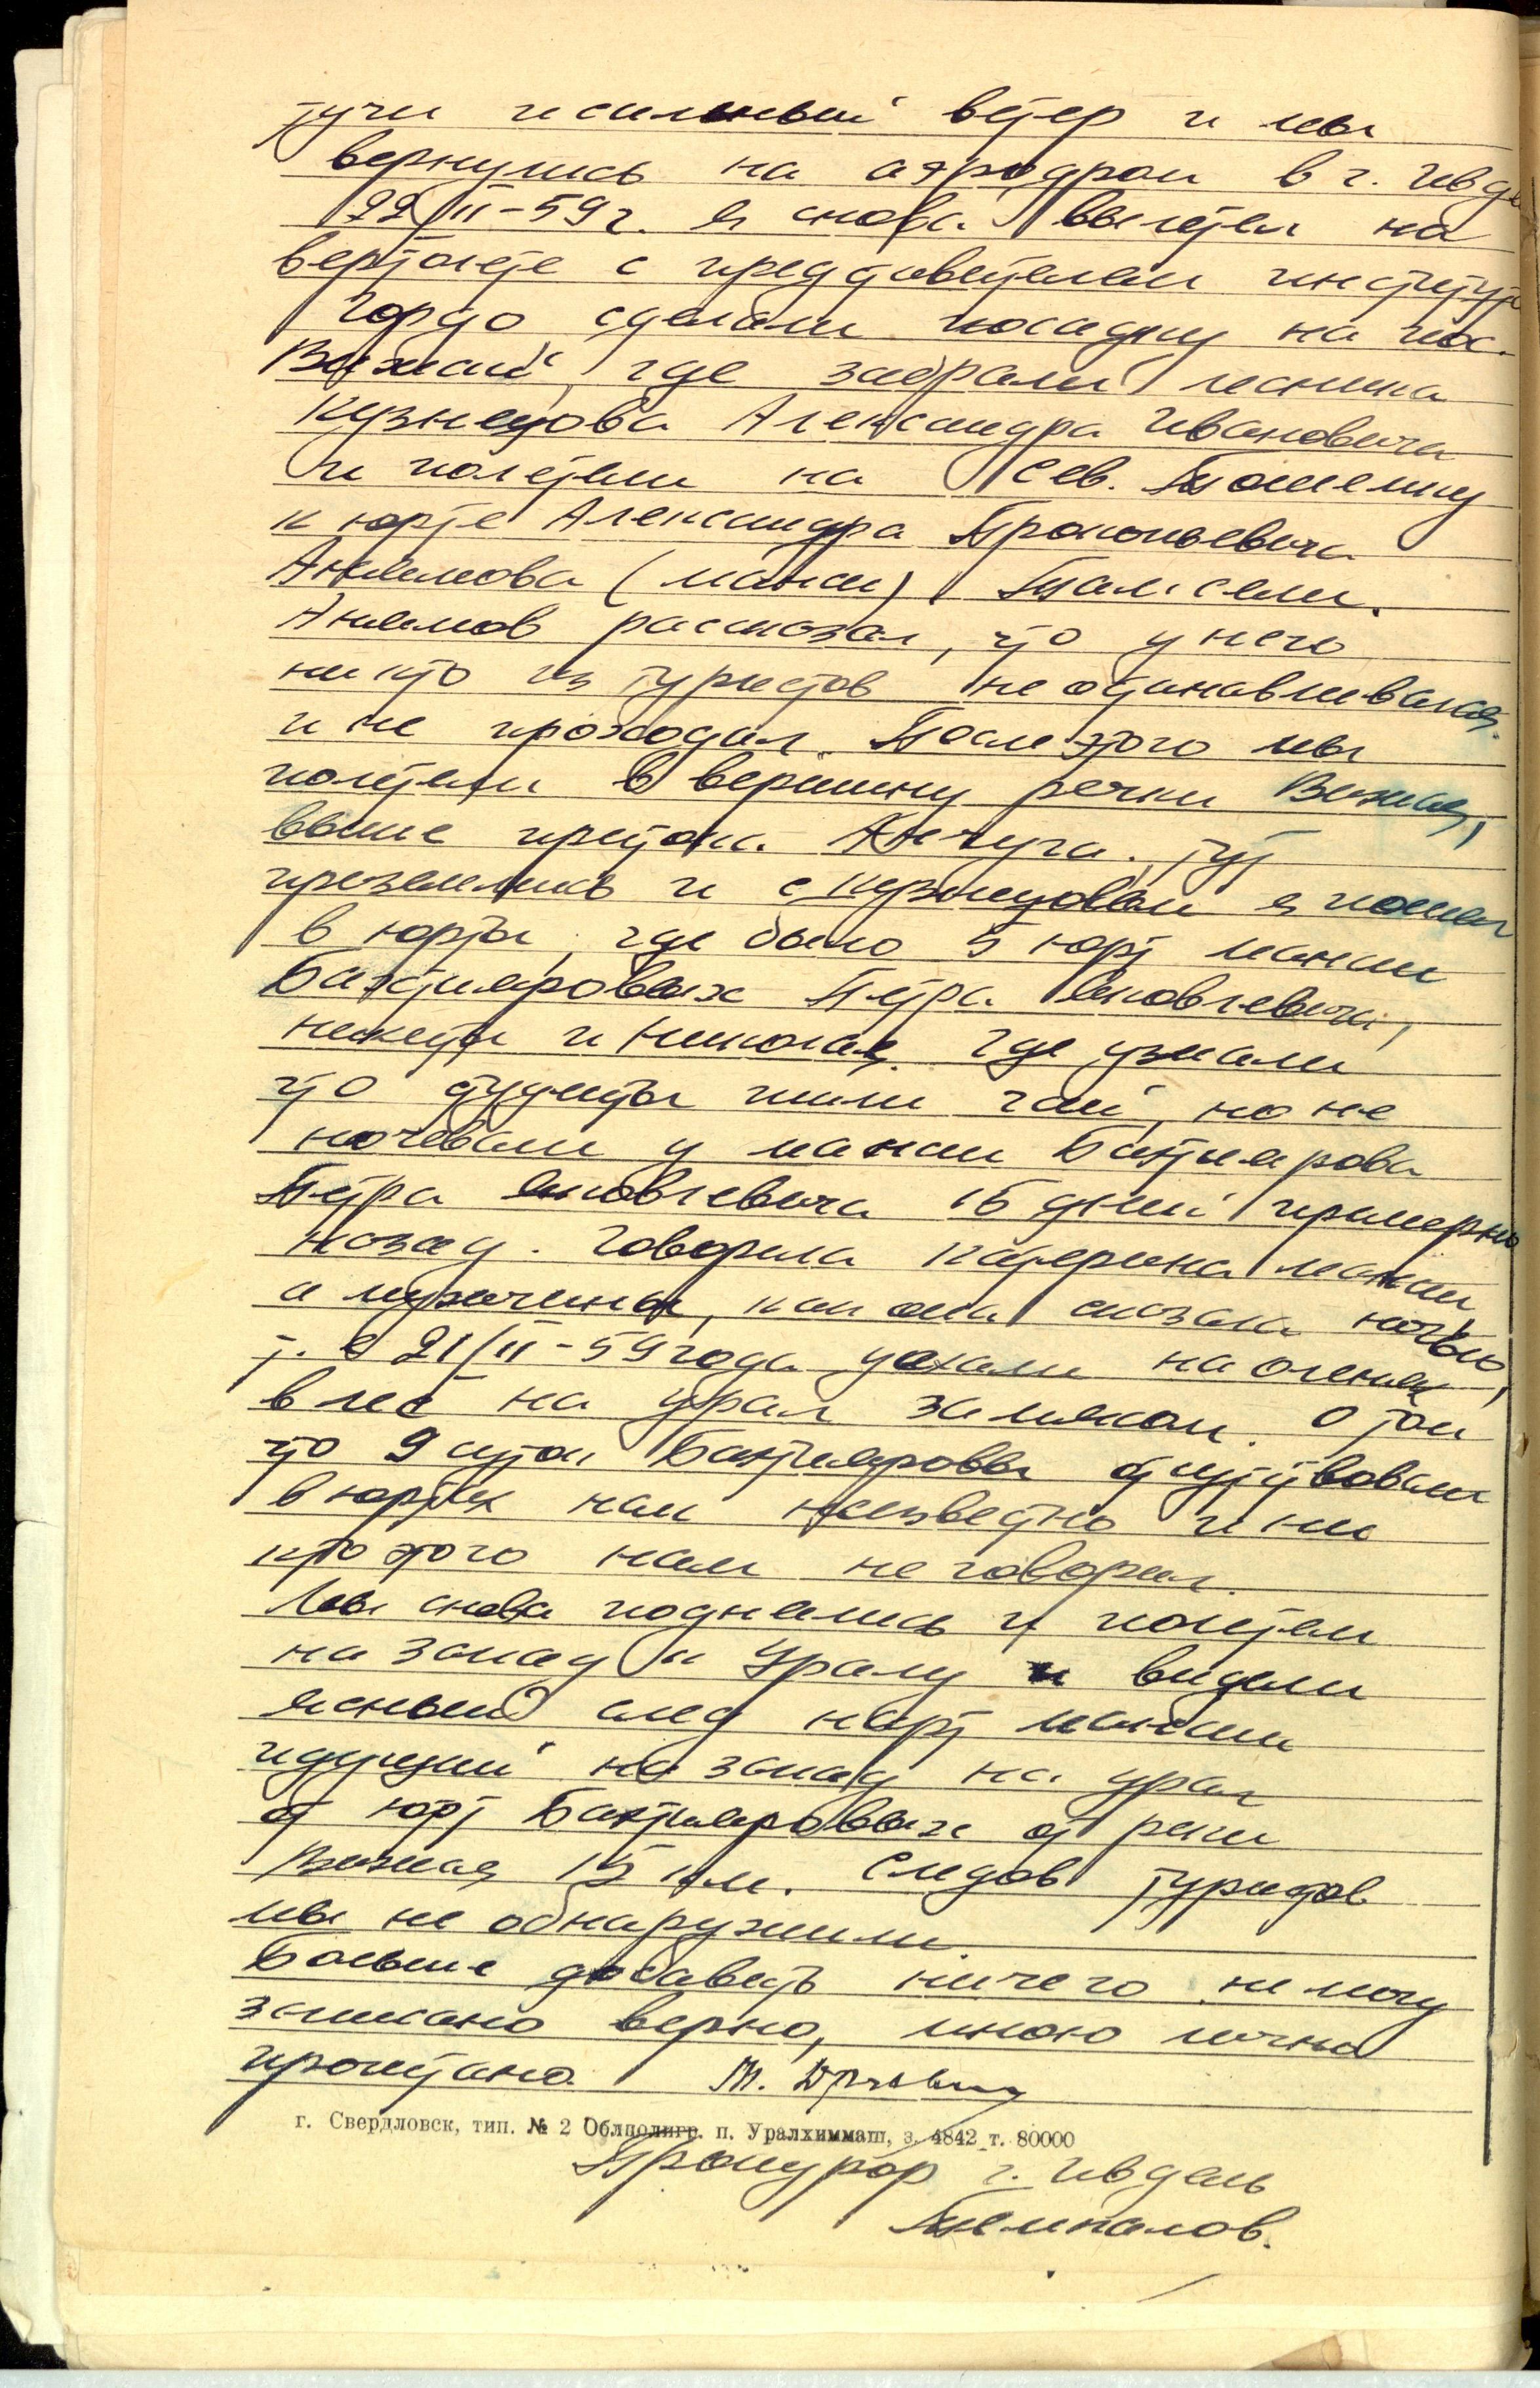 тучи и сильный ветер и мы
вернулись на аэродром в г. Ивдель
22/II-59 г. я снова вылетел на
вертолете с представителем института
Гордо сделали посадку на пос.
Вижай, где забрали лесника
Кузнецова Александра Ивановича
и полетели на Сев. Тошемку
к юрте Александра Прокопьевича
Анямова (манси) Там сели.
Анямов рассказал, что у него
никто из туристов не останавливался
и не проходил. После этого мы
полетели в вершину речки Вижая,
выше притока Анчуга. тут
приземлились и с Кузнецовым я пошел
в юрты, где было 5 юрт манси
Бахтияровых Петра Яковлевича,
Никиты и Николая. Где узнали
что студенты пили чай, но не
ночевали у манси Бахтиярова
Петра Яковлевича 15 дней примерно
назад. Говорила Катерина манси
а мужчины, как она сказала ночью,
т. е 21/II-59 года уехали на оленях,
в лес на Урал за мясом. О том
что 9 суток Бахтияровы отсутствовали
в юртах нам неизвестно и ни
кто этого нам не говорил.
Мы снова поднялись и полетели
на запад к Уралу и видели
ясный след нарт манси
идущий на запад на Урал
от юрт Бахтияровых от реки
Вижая 15 км. Следов туристов
мы не обнаружили.
Больше добавить ничего не могу
записано верно, мною лично
прочитано
г. Свердловск, тип. № 2 Облполигр. п. Уралхиммаш, з. 4842 т. 80000
Прокурор г. Ивдель
Темпалов.